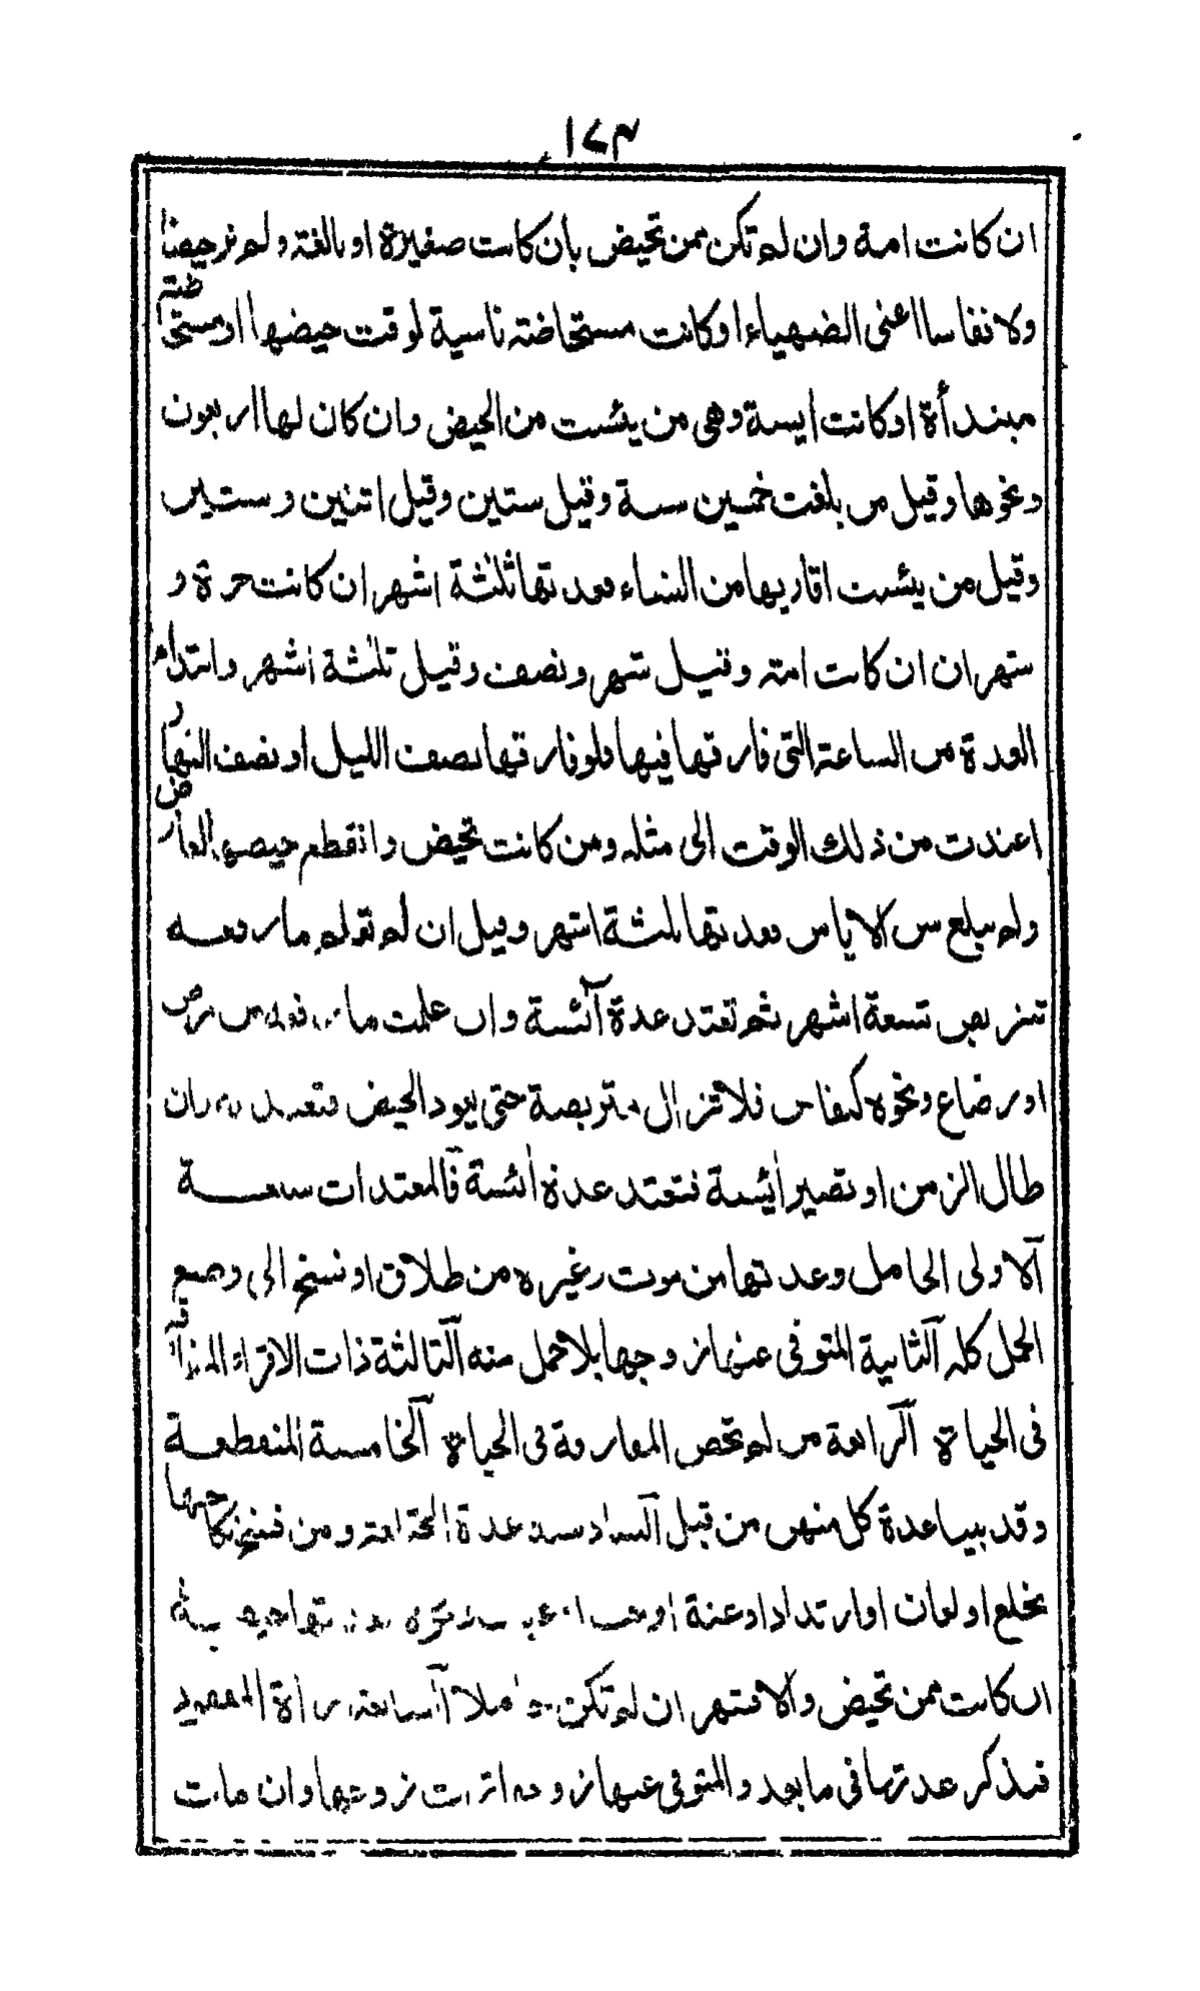 ١٨٣
ان كانت امة وان لم تكن ممن تحيض بأن كانت صغيرة او بالغة ولم تر حيضا
ولا نفاسا اعنى الضهياء او كانت مستحاضة ناسية لوقت حيضها او مستحاضة
مبتدأة او كانت ايسة وهى من يئست من الحيض وان كان لها اربعون
ونحوها وقيل من بلغت خمسين سنة وقيل ستين وقيل اثنين وستين
وقيل من يئست اقاربها من النساء فعدتها ثلثة اشهر ان كانت حرة و
شهران ان كانت امة وقيل شهر ونصف وقيل ثلثة اشهر وابتداء
العدة من الساعة التى فارقها فيها ولو فارقها نصف الليل او نصف النهار
اعتدت من ذلك الوقت الى مثله ومن كانت تحيض وانقطع حيضها لعارض
ولم تبلغ سن الاياس فعدتها ثلثة اشهر وقيل ان لم تعلم ما رفعه
تتربص تسعة اشهر ثم تعتد عدة آئسة وان علمت ما رفعه من مرض
او رضاع ونحوه كنفاس فلا تزال متربصة حتى يعود الحيض فتعتد به وان
طال الزمن او تصير أيسة فتعتد عدة أئسة فالمعتدات سبعة
آلاولى الحامل وعدتها من موت وغيره من طلاق او فسخ الى وضع
الحمل كله آلثانية المتوفى عنها زوجها بلا حمل منه آلثالثة ذات الاقراء المفارقة
فى الحياة آلرابعة من لم تحض المفارقة فى الحياة آلخامسة المنقطعة
وقد بينا عدة كل منهن من قبل آلسادسة عدة المختلعة ومن فسخ نكاحها
بخلع او لعان او ارتداد او عنة او
ان كانت ممن تحيض والا فشهر ان لم تكن حاملا آلسابعة امرأة المفقود
فيذكر عدتها فى ما بعد والمتوفى عنها زوجها زوجها وان مات